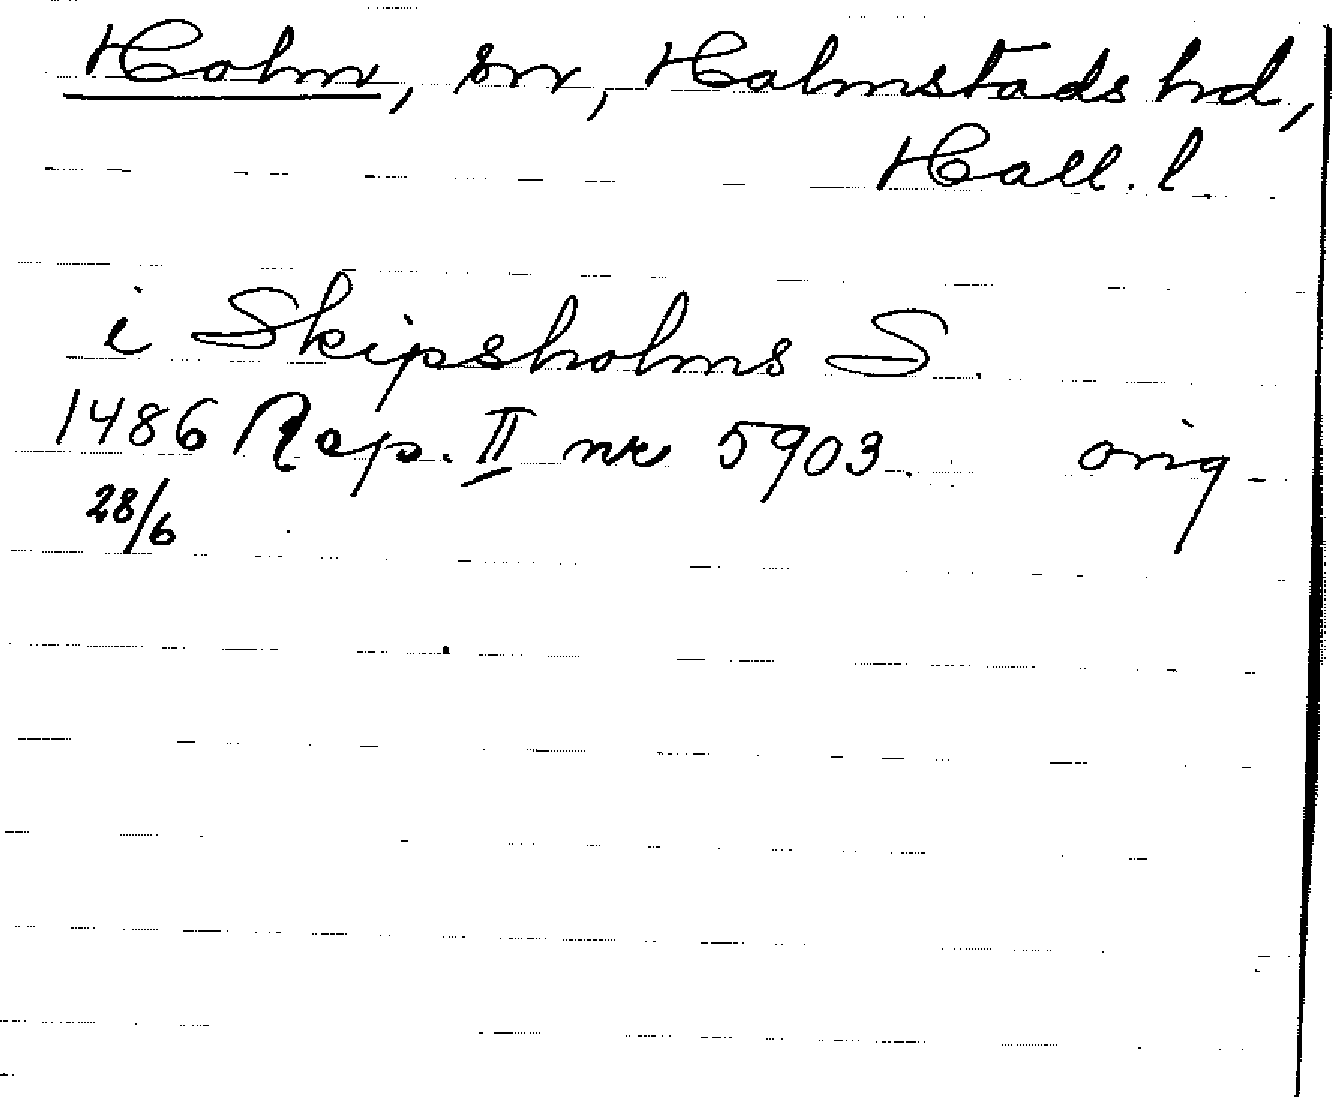 Holm, sn, Halmstads hd,
Hall. l.
i Skipsholms S.
1486 Rep. II nr 5903. orig
28/6